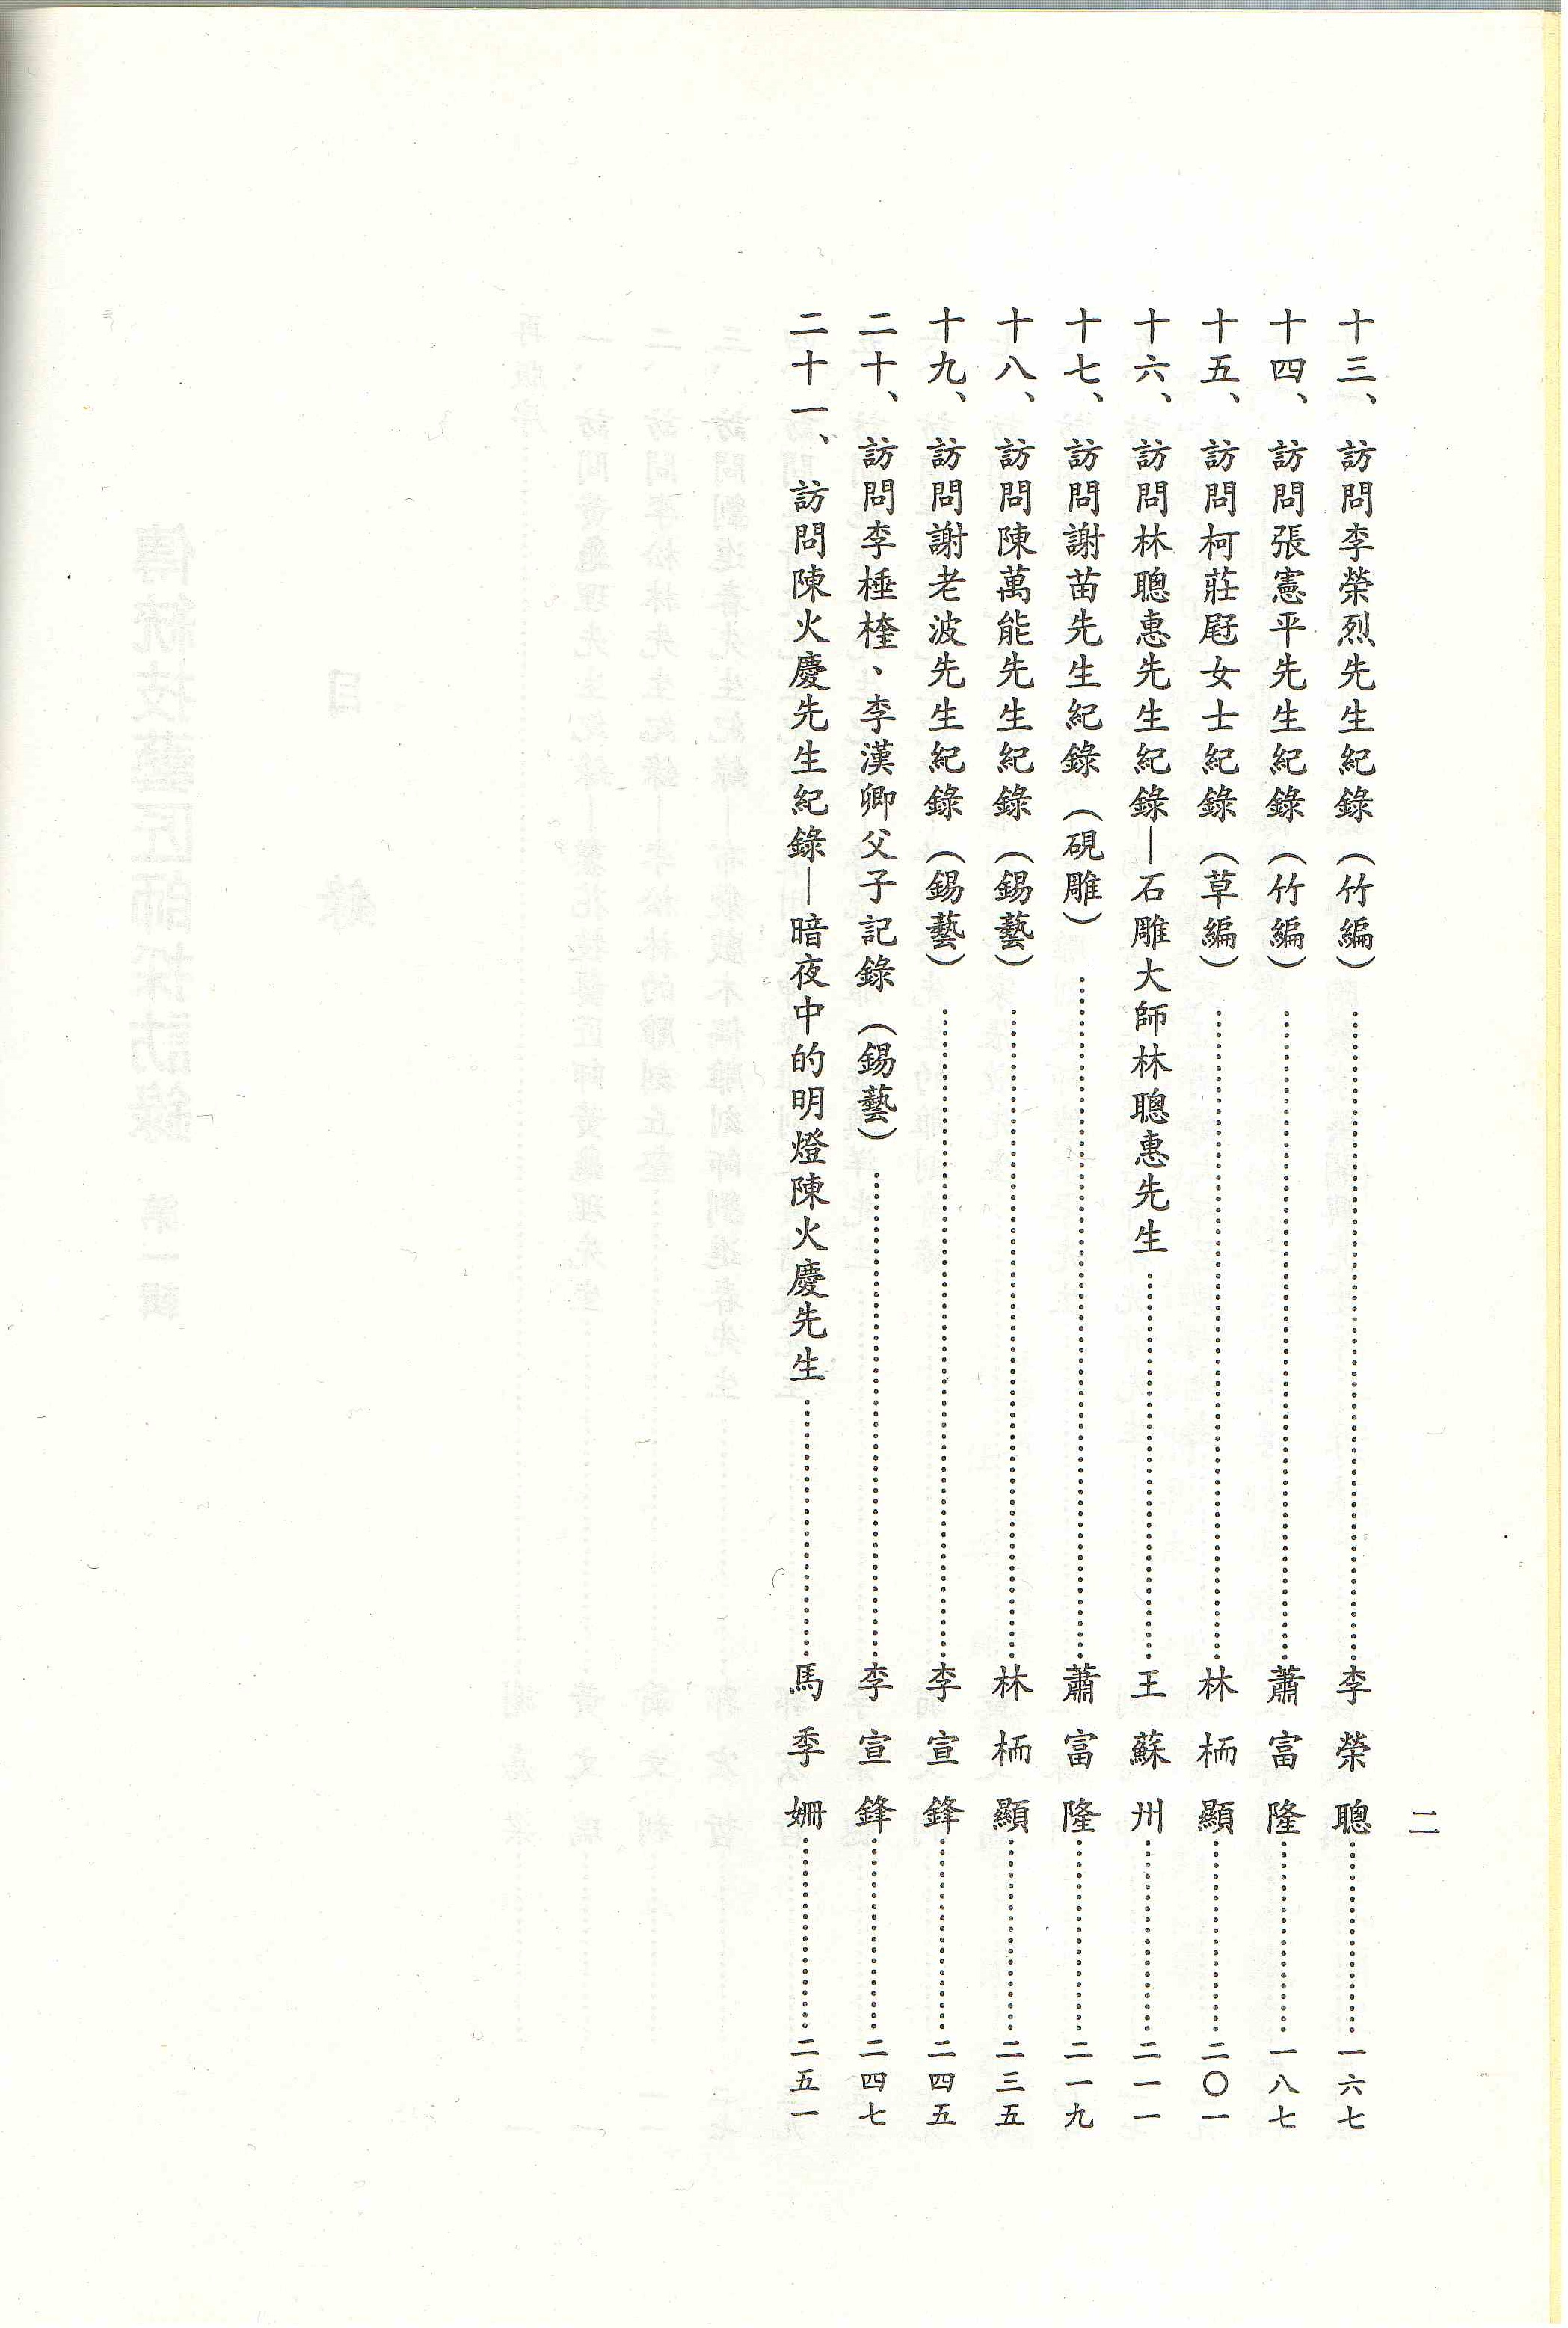 二
十三、訪問李榮烈先生紀錄（竹編）……李榮聰……一六七
十四、訪問張憲平先生紀錄（竹編）……蕭富隆……一八七
十五、訪問柯莊屘女士紀錄（草編）……林栭顯……二〇一
十六、訪問林聰惠先生紀錄—石雕大師林聰惠先生……王蘇州……二一一
十七、訪問謝苗先生紀錄（硯雕）……蕭富隆……二一九
十八、訪問陳萬能先生紀錄（錫藝）……林栭顯……二三五
十九、訪問謝老波先生紀錄（錫藝）……李宣鋒……二四五
二十、訪問李棰楏、李漢卿父子記錄（錫藝）……李宣鋒……二四七
二十一、訪問陳火慶先生紀錄—暗夜中的明燈陳火慶先生……馬季姍……二五一